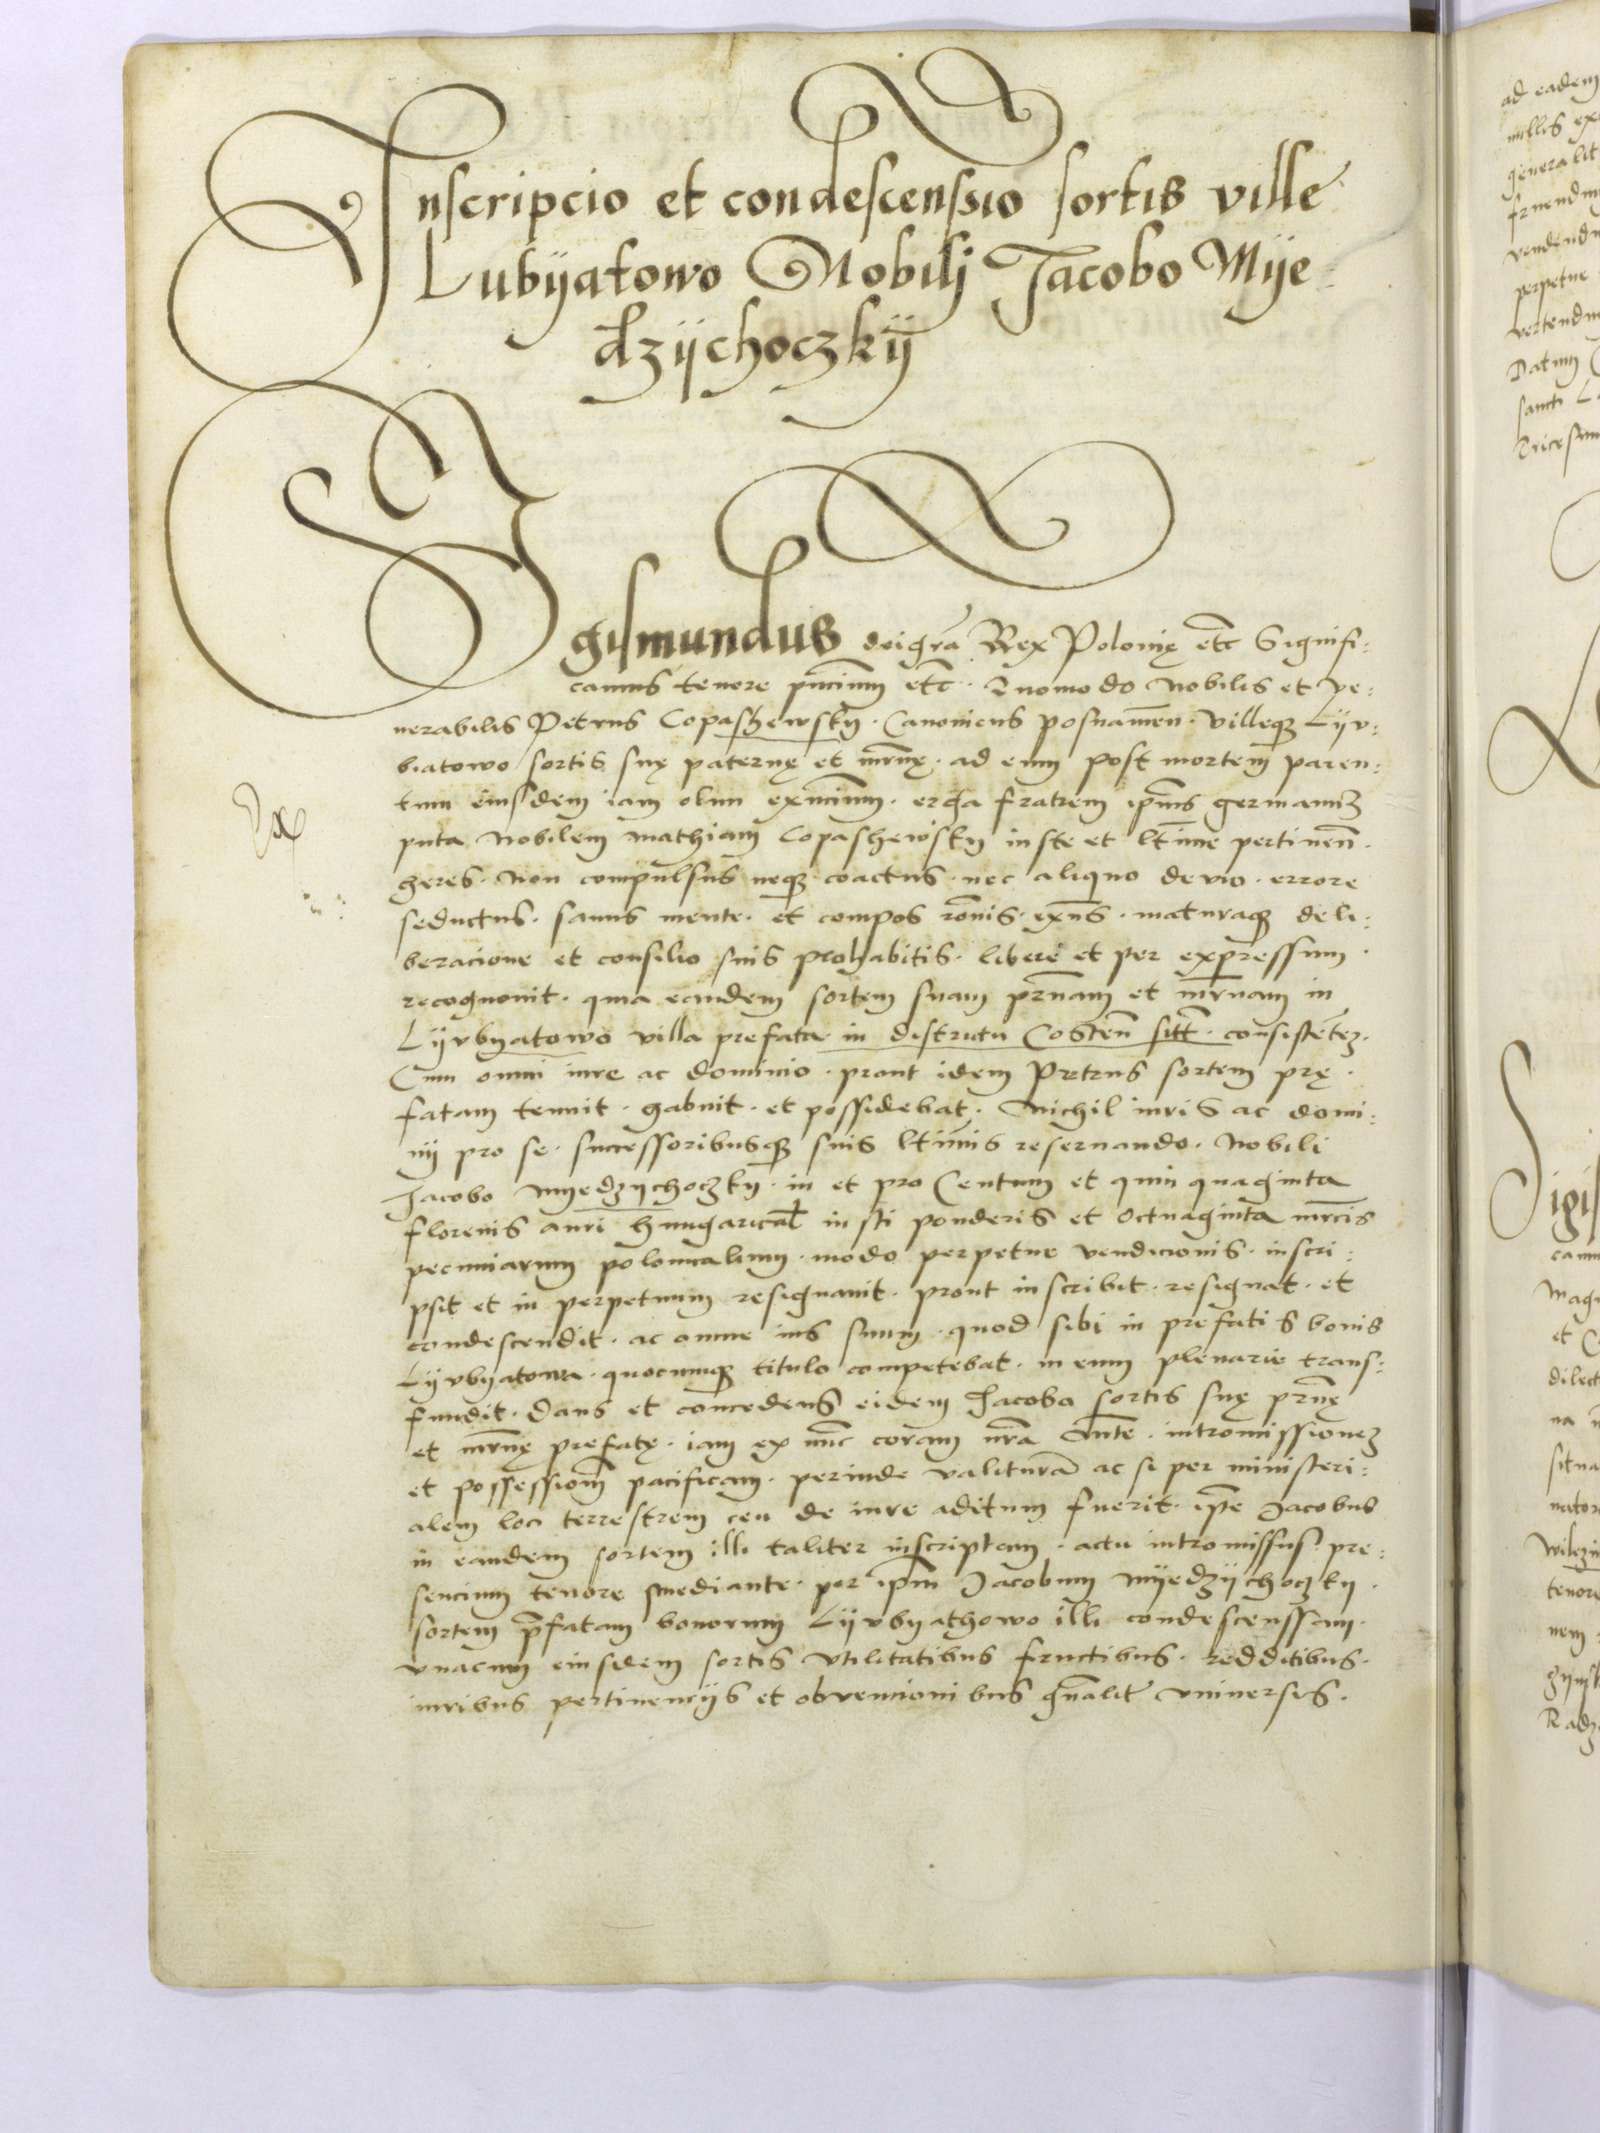 Inscripcio et condescenssio sortis ville
Lubyatowo Nobilj Jacobo Mye=
dzychoczky
Sigismundus dei grã Rex Polonię etc Signifi=
camus tenore pñcium etc. Quomodo Nobilis et ve=
nerabilis Petrus Copashewsky. Canonicus posnanien. villeqz Lyv=
biatowo sortis suę paternę et mrnę. ad eum post mortem paren=
tum eiusdem iam olim exñcium. erga fratrem ipius germanuz
puta Nobilem Mathiam Copashewsky iuste et ltime pertinen.
heres. Non compulsus neqz coactus. nec aliquo devio. errore
seductus. sanus mente. et compos rõnis. exñs. maturaqz deli=
beracione et consilio suis prohabitis. libere et per expressum.
recognovit. quia eandem sortem suam prnam et mrnam in
Lyvbyatowo villa prefata in districtu Costeñ sitt. consistẽtez.
Cum omni iure ac dominio. prout idem Petrus sortem prę=
fatam tenuit. habuit. et possidebat. Nichil iuris ac domi=
nij pro se. successoribusqz suis ltimis reservando. Nobili
Jacobo Myedzychoczky. in et pro Centum et quinquaginta
florenis auri Hungarical iusti ponderis et Octuaginta mrcis
pecuniarum polonicalium. modo perpetue vendicionis. inscri=
psit et in perpetuum resignavit. prout inscribit. resignat. et
condescendit. ac omne ius suum. quod sibi in prefatis bonis
Lyvbyatowa. quocumqz titulo competebat. in eum plenarie trans=
fundit. Dans et concedens eidem Jacobo sortis suę prnę
et mrnę prefatę. iam ex nunc coram nrã Mte. intromissionez
et possessionẽ pacificam. perinde valiturã ac si per ministeri=
alem loci terrestrem ceu de iure aditum fuerit. ipe Jacobus
in eandem sortem illi taliter inscriptam. actu intromissus. pre=
sencium tenore mediante. per ipm Jacobum Myedzychoczky.
sortem pfatam bonorum Lyvbyathowo illi condescenssam.
vnacum eiusdem sortis vtilitatibus fructibus. redditibus.
iuribus pertinencijs et obvencionibus gñalit vniversis.